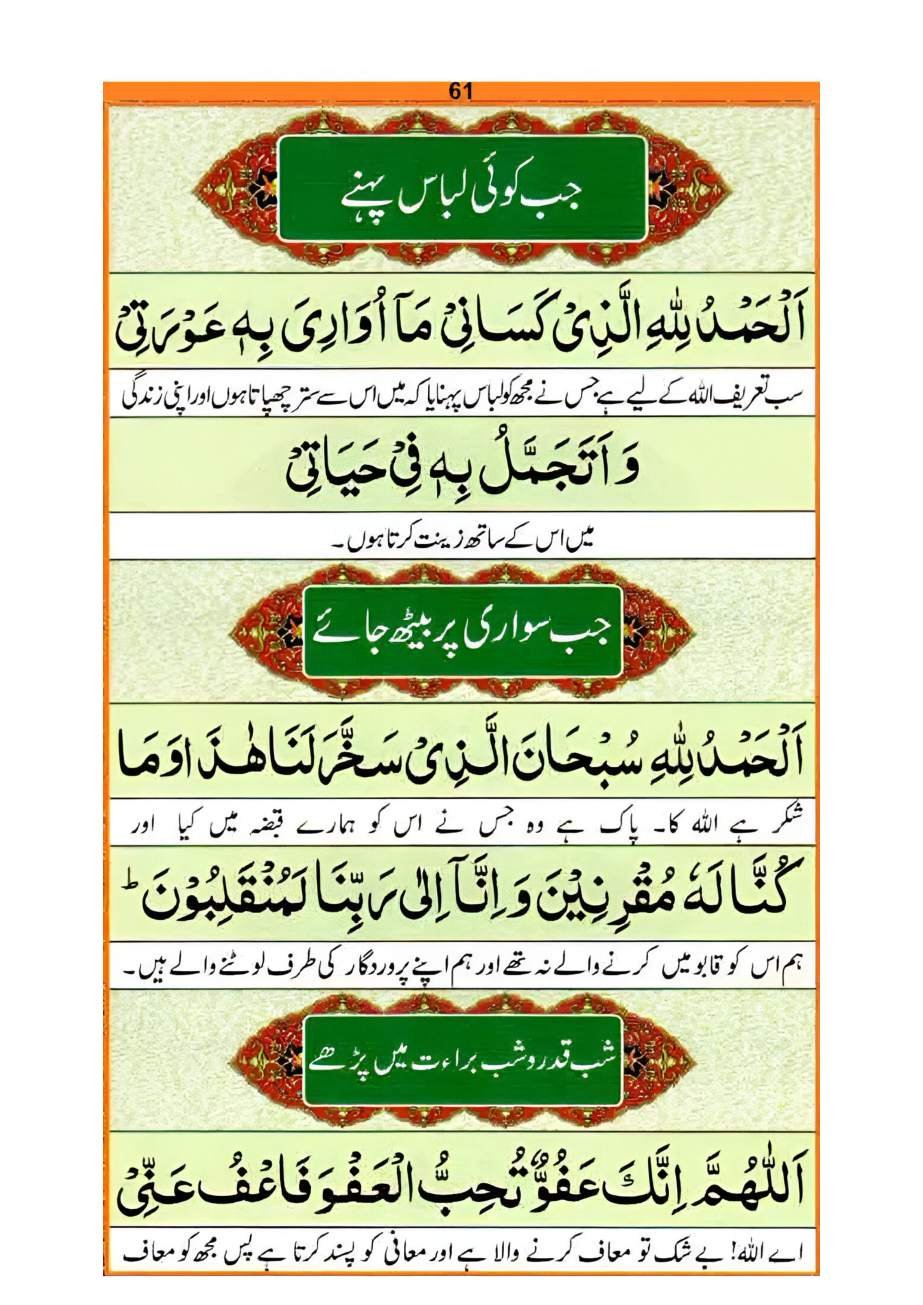 61
جب کوئی لباس پہنے
اَلْحَمْدُ لِلّٰهِ الَّذِیْ كَسَانِیْ مَآ اُوَارِیَ بِهٖ عَوْرَتِیْ
سب تعریف اللہ کے لیے ہے جس نے مجھ کو لباس پہنایا کہ میں اس سے ستر چھپاتا ہوں اور اپنی زندگی
وَ اَتَجَمَّلُ بِهٖ فِیْ حَيَاتِیْ
میں اس کے ساتھ زینت کرتا ہوں۔
جب سواری پر بیٹھ جائے
اَلْحَمْدُ لِلّٰهِ سُبْحَانَ الَّذِیْ سَخَّرَ لَنَا هٰذَا وَمَا
شکر ہے اللہ کا۔ پاک ہے وہ جس نے اس کو ہمارے قبضہ میں کیا اور
كُنَّا لَهٗ مُقْرِنِيْنَ وَ اِنَّآ اِلٰى رَبِّنَا لَمُنْقَلِبُوْنَ ؕ
ہم اس کو قابو میں کرنے والے نہ تھے اور ہم اپنے پروردگار کی طرف لوٹنے والے ہیں۔
شب قدر و شب براءت میں پڑھے
اَللّٰهُمَّ اِنَّكَ عَفُوٌّ تُحِبُّ الْعَفْوَ فَاعْفُ عَنِّیْ
اے اللہ! بے شک تو معاف کرنے والا ہے اور معافی کو پسند کرتا ہے پس مجھ کو معاف